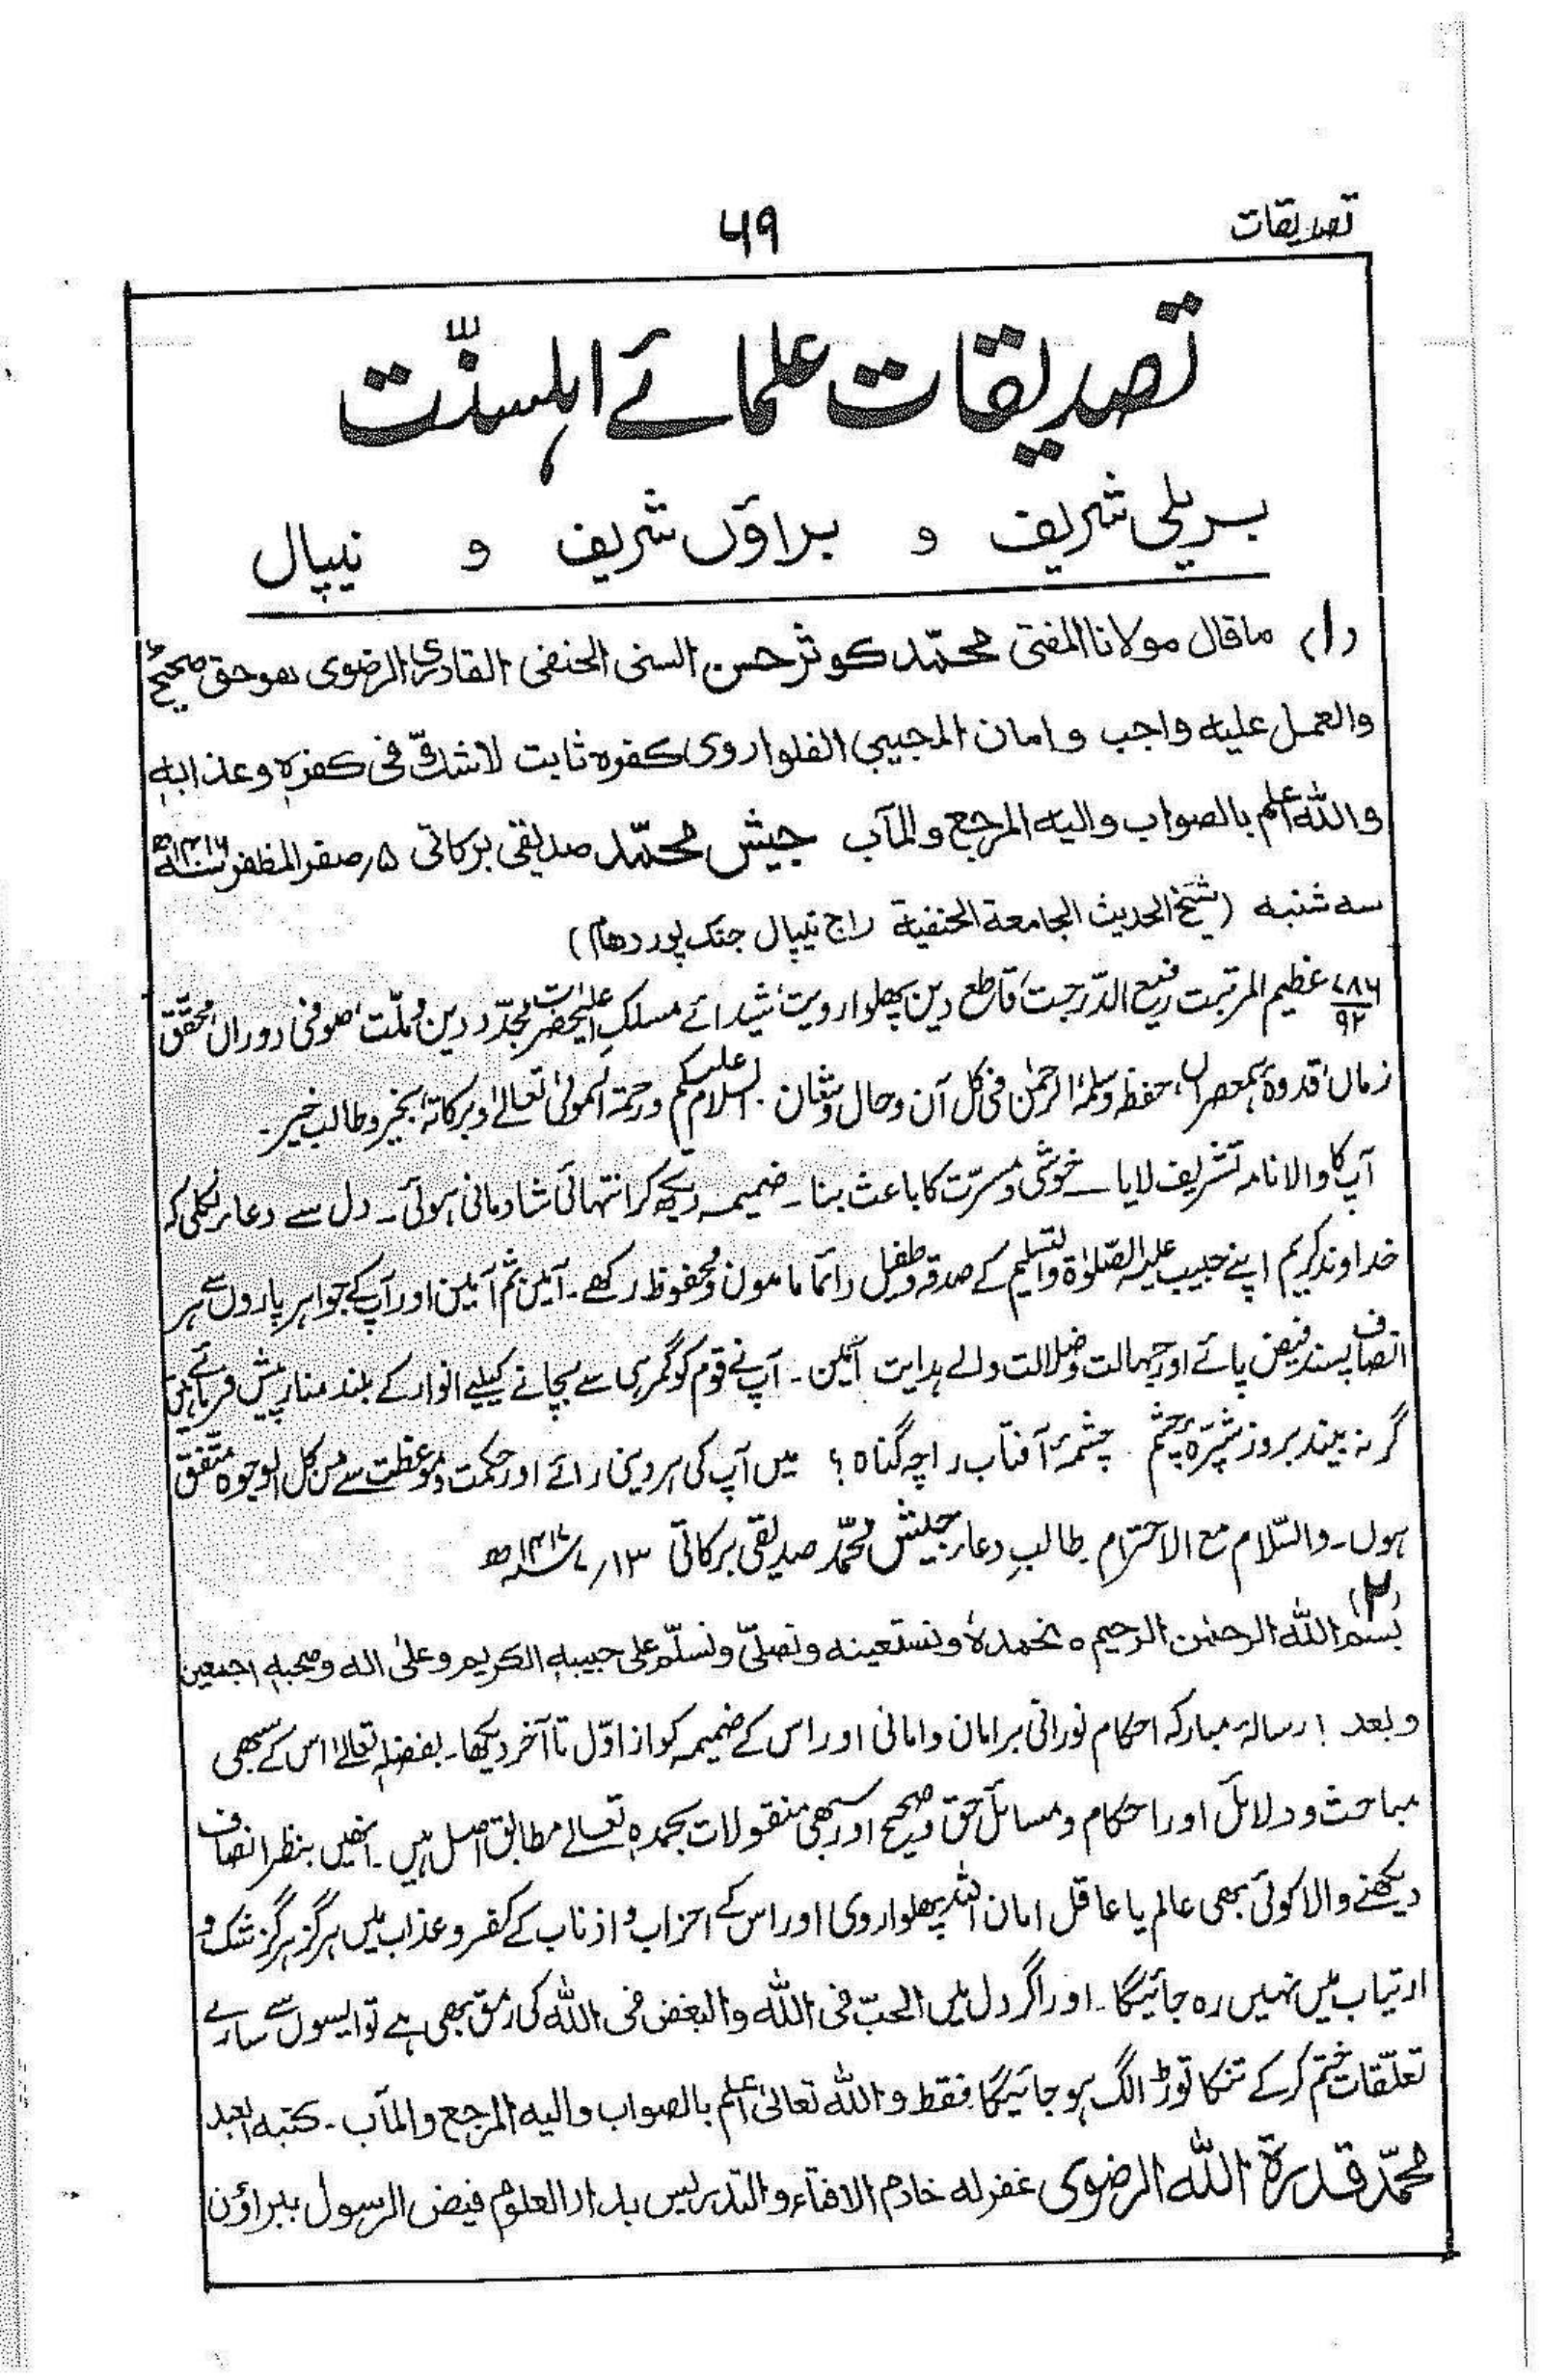 تصدیقات
۶۹
تصدیقات علمائے اہلسنّت
بریلی شریف و براؤں شریف و نیپال
(۱) ماقال مولانا المفتی محمّد کوثر حسن السنی الحنفی القادری الرضوی ھو حق صحیح
والعمل علیہ واجب وامان المجیبی الفلواروی کفرہ ثابت لاشک فی کفرہ وعذابہ
واللہ اعلم بالصواب والیہ المرجع والمآب جیش محمّد صدیقی برکاتی ۵؍صفر المظفر ۱۴۱۷ھ
سہ شنبہ (شیخ الحدیث الجامعۃ الحنفیۃ راج نیپال جنک پور دھام)
۷۸۶/۹۲ عظیم المرتبت رفیع الدّرجت، قاطع دین پھلواروبیت، شیدائے مسلکِ اعلیٰحضرت مجدّد دین وملّت، صوفی دوراں، محقق
زماں، قدوۂ ہمعصراں، حفظہ وسلمہ الرحمٰن فی کل آن وحال وشان۔ السلام علیکم ورحمۃ المولیٰ تعالےٰ وبرکاتہ، بخیر وطالب خیر۔
آپ کا والا نامہ تشریف لایا ــ خوشی ومسرّت کا باعث بنا۔ ضمیمہ دیکھ کر انتہائی شادمانی ہوئی۔ دل سے دعار نکلی کہ
خداوند کریم اپنے حبیب علیہ الصّلوٰۃ والتسلیم کے صدقہ وطفیل دائماً مامون ومحفوظ رکھے۔ آمین ثم آمین اور آپ کے جواہر پاروں سے ہر
انصاف پسند فیض پائے اور جہالت وضلالت والے ہدایت آمین۔ آپ نے قوم کو گمرہی سے بچانے کیلیے انوار کے بلند منار پیش فرمائے ہیں
گر نہ بیند بروز شپرّہ چشم چشمۂ آفتاب را چہ گناہ؟ میں آپ کی ہر دینی رائے اور حکمت وموعظت سے من کل الوجوہ متفق
ہوں۔ والسّلام مع الاحترام۔ طالبِ دعار جیش محمّد صدیقی برکاتی ۱۳؍۷؍۱۴۱۷ھ
(۲)
بسم اللہ الرحمٰن الرحیم ہ نحمدہٗ ونستعینہ ونصلیّ ونسلّم علی حبیبہٖ الکریم وعلیٰ الہ وصحبہٖ اجمعین
وبعد! رسالہ مبارکہ احکام نورانی بر امان وامانی اور اس کے ضمیمہ کو از اوّل تا آخر دیکھا۔ بفضلہٖ تعالےٰ اس کے سبھی
مباحث ودلائل اور احکام ومسائل حق وصحیح اور سبھی منقولات بحمدہٖ تعالےٰ مطابق اصل ہیں۔ انھیں بنظر انصاف
دیکھنے والا کوئی بھی عالم یا عاقل امان اللہ پھلواروی اور اس کے احزاب و اذناب کے کفر وعذاب میں ہرگز ہرگز شک و
ارتیاب میں نہیں رہ جائیگا۔ اور اگر دل میں الحبّ فی اللہ والبغض فی اللہ کی رمق بھی ہے تو ایسوں سے سارے
تعلّقات ختم کر کے تنکا توڑ الگ ہو جائیگا فقط واللہ تعالیٰ اعلم بالصواب والیہ المرجع والمآب۔ کتبہ العبد
محمّد قدرۃ اللہ الرضوی غفرلہ خادم الافتاء والتدریس بدار العلوم فیض الرسول ببراؤن